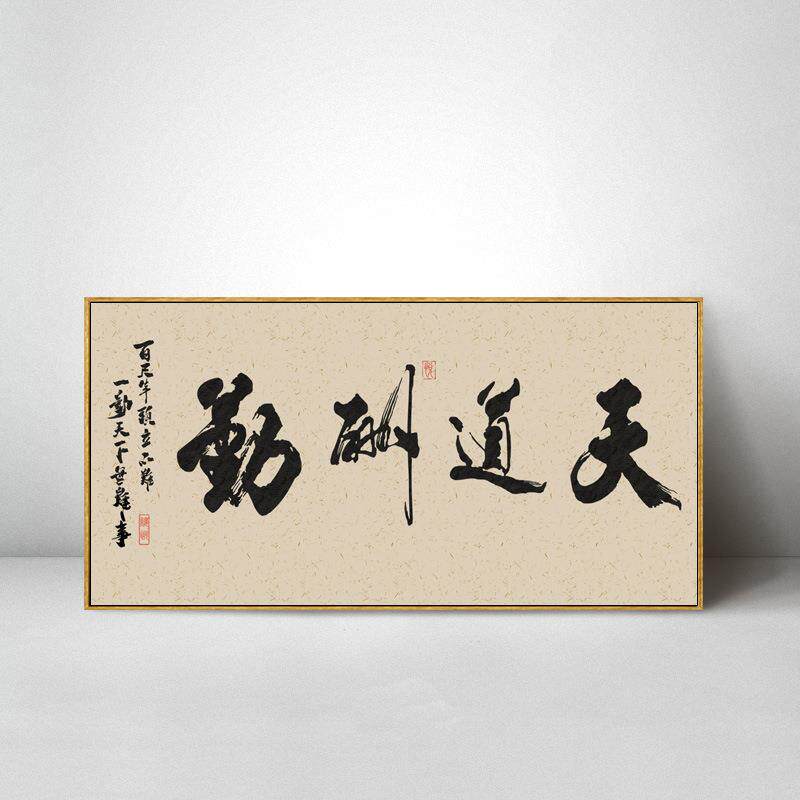 天道酬勤
百尺竿頭立不難
一勤天下無難事